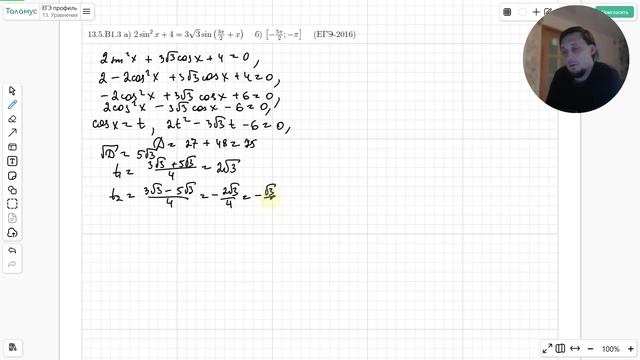 Таламус
ЕГЭ профиль
13. Уравнения
13.5.В1.3 а) 2 sin² x + 4 = 3√3 sin (3π/2 + x) б) [−5π/2; −π] (ЕГЭ-2016)
2sin²x + 3√3 cosx + 4 = 0,
2 − 2cos²x + 3√3 cosx + 4 = 0,
−2cos²x + 3√3 cosx + 6 = 0,
2cos²x − 3√3 cosx − 6 = 0,
cosx = t, 2t² − 3√3 t − 6 = 0,
D = 27 + 48 = 75
√D = 5√3
t₁ = (3√3 + 5√3)/4 = 2√3
t₂ = (3√3 − 5√3)/4 = −2√3/4 = −√3
100%